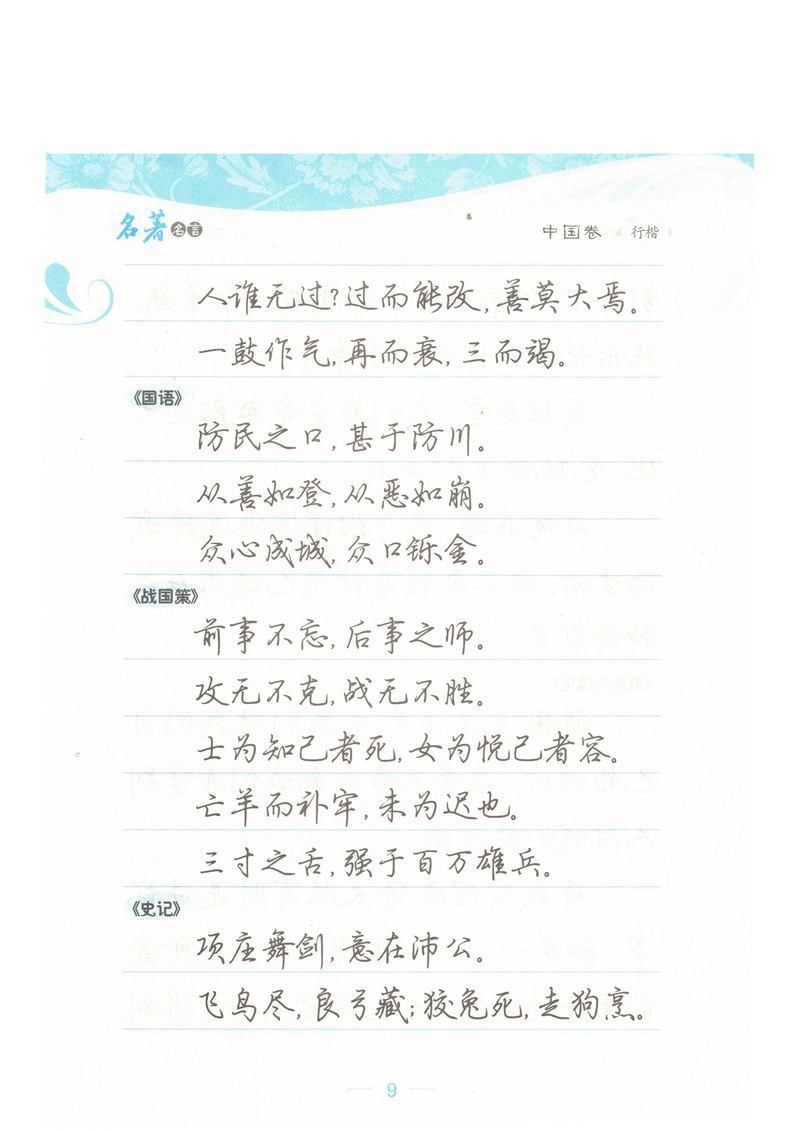 名著名言
中国卷 行楷
人谁无过?过而能改,善莫大焉。
一鼓作气,再而衰,三而竭。
《国语》
防民之口,甚于防川。
从善如登,从恶如崩。
众心成城,众口铄金。
《战国策》
前事不忘,后事之师。
攻无不克,战无不胜。
士为知己者死,女为悦己者容。
亡羊而补牢,未为迟也。
三寸之舌,强于百万雄兵。
《史记》
项庄舞剑,意在沛公。
飞鸟尽,良弓藏;狡兔死,走狗烹。
9